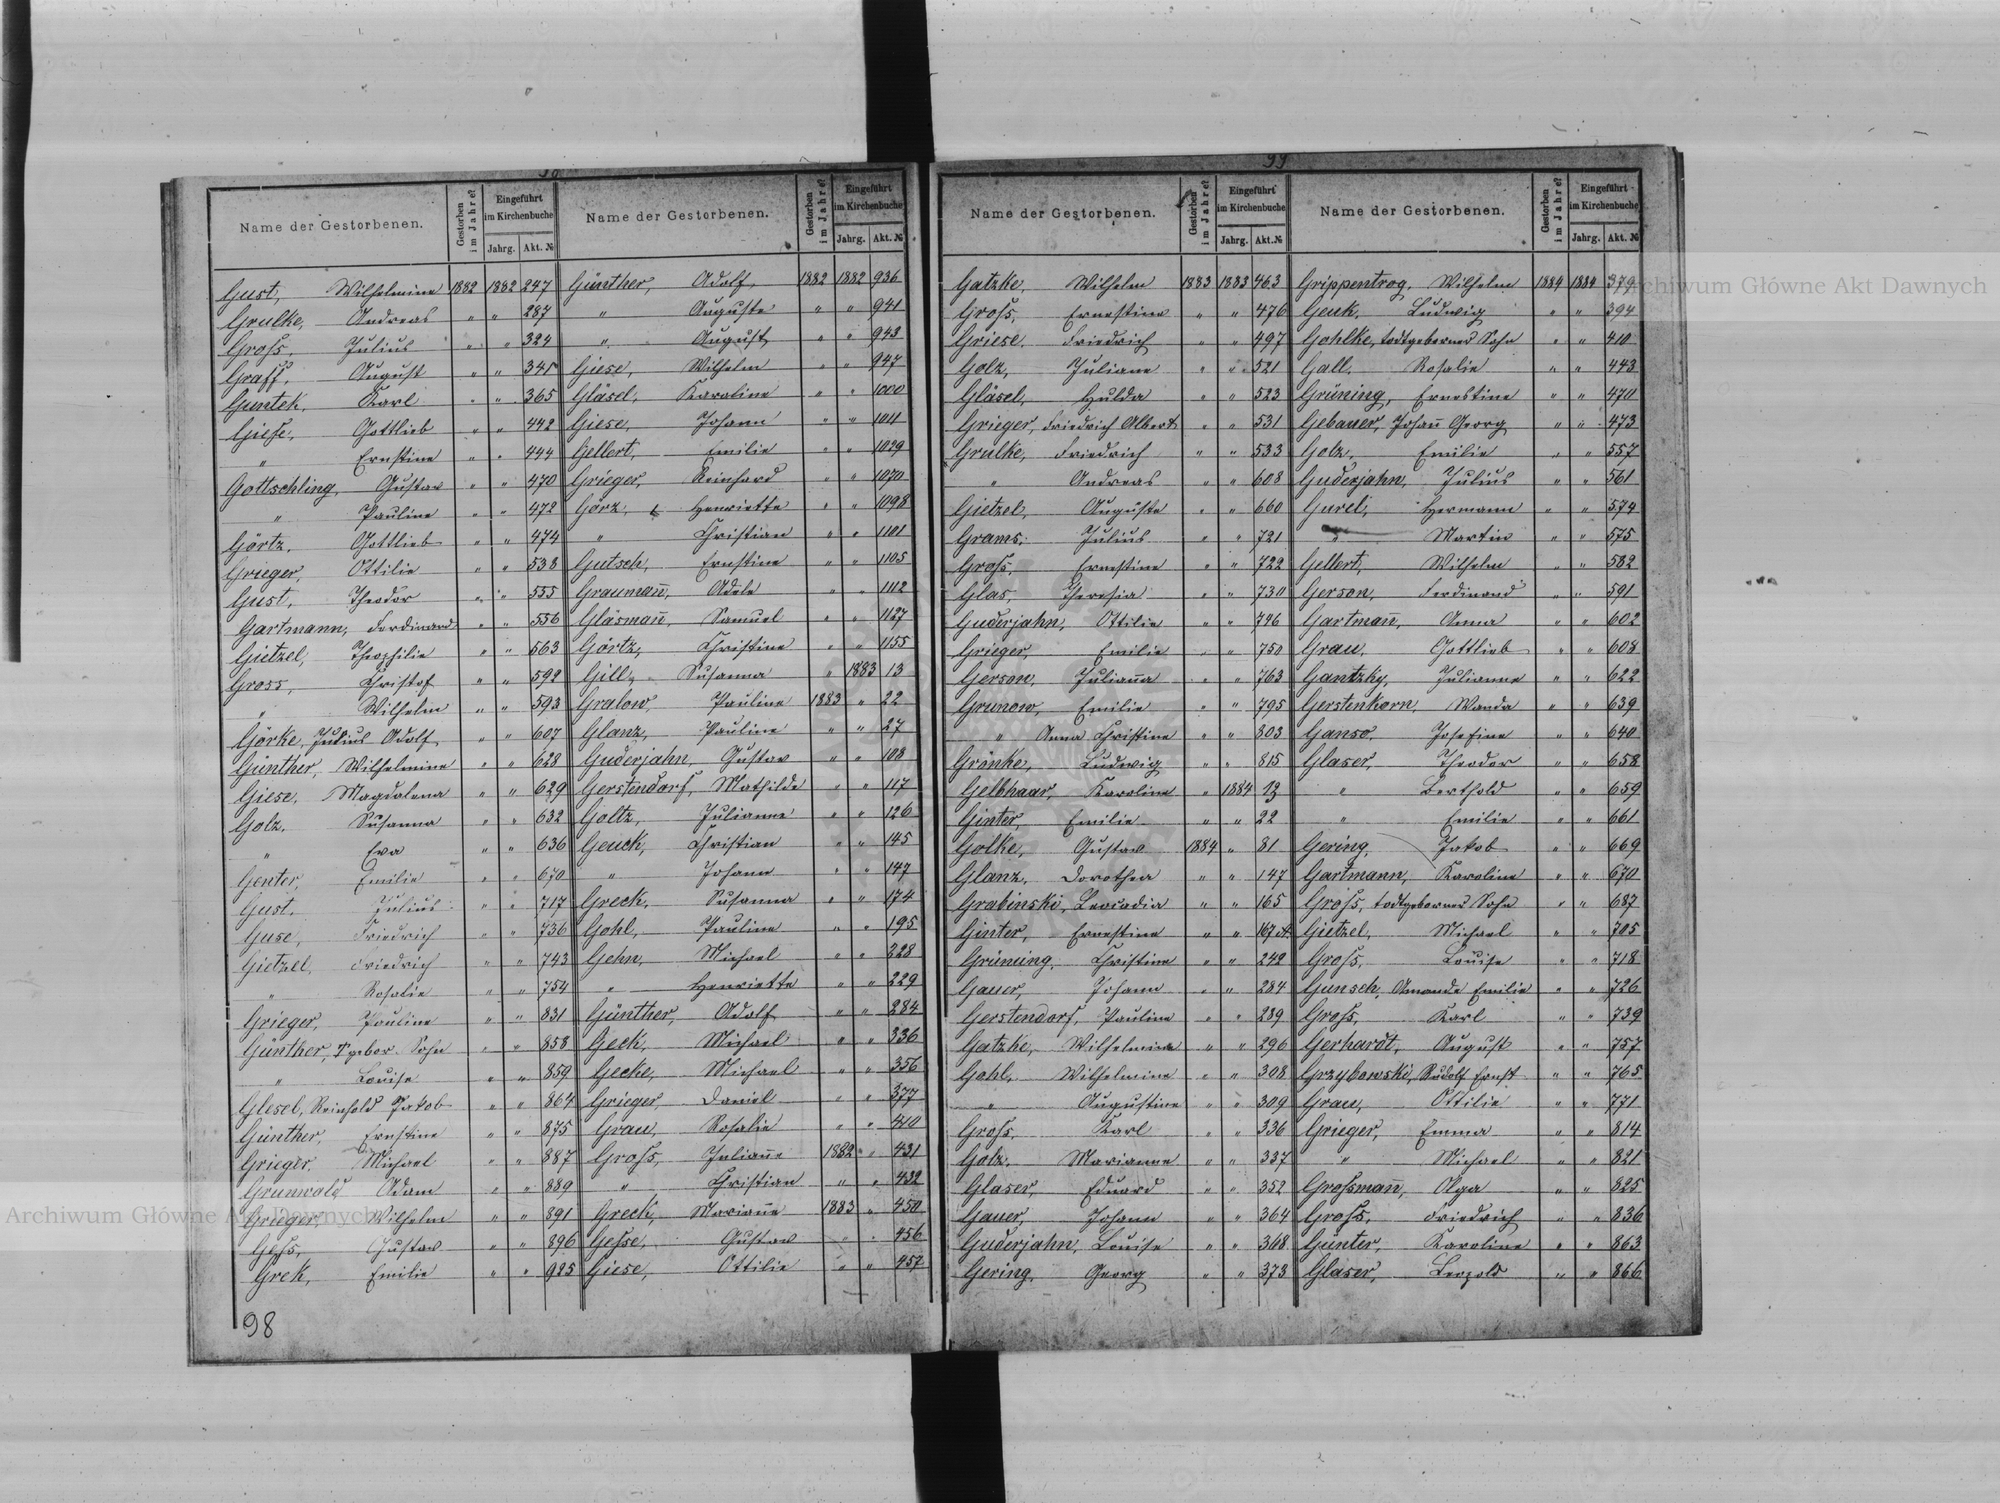 98
Name der Gestorbenen. Gestorben im Jahre? Eingeführt im Kirchenbuche Jahrg. Akt. №
Gust, Wilhelmine 1882 1882 247
Grulke, Andreas " " 287
Groſs, Julius " " 324
Graff, August " " 345
Guntek, Karl " " 365
Gieſe, Gottlieb " " 442
" Ernstine " " 444
Gottschling, Gustav " " 470
" Pauline " " 472
Görtz, Gottlieb " " 474
Grieger, Ottilie " " 538
Gust, Theodor " " 555
Gartmann, Ferdinand " " 556
Gietzel, Theophilie " " 563
Gross, Christof " " 592
" Wilhelm " " 593
Görke, Julius Adolf " " 607
Günther, Wilhelmine " " 628
Giese, Magdalena " " 629
Golz, Susanna " " 632
" Eva " " 636
Genter, Emilie " " 670
Gust, Julius " " 717
Guse, Friedrich " " 736
Gietzel, Friedrich " " 743
" Rosalie " " 754
Grieger, Pauline " " 831
Günther, T'gebor. Sohn " " 858
" Louise " " 859
Glesel, Reinhold Jakob " " 864
Günther, Ernstine " " 875
Grieger, Michael " " 887
Grunwald Adam " " 889
Grieger, Wilhelm " " 891
Geſs, Gustav " " 896
Grek, Emilie " " 925
98
Name der Gestorbenen. Gestorben im Jahre? Eingeführt im Kirchenbuche Jahrg. Akt. №
Günther, Adolf 1882 1882 936
" Auguste " " 941
" August " " 943
Giese, Wilhelm " " 947
Gläsel, Karoline " " 1000
Giese, Johann " " 1011
Gellert, Emilie " " 1029
Grieger, Reinhard " " 1070
Görz, Henriette " " 1098
" Christian " " 1101
Gutsch, Ernstine " " 1105
Graumañ, Adele " " 1112
Gläsmañ, Samuel " " 1127
Görtz, Christine " " 1155
Gill, Susanna " 1883 13
Gralow, Pauline 1883 " 22
Glanz, Pauline " " 27
Guderjahn, Gustav " " 108
Gerstendorf, Mathilde " " 117
Goltz, Julianne " " 126
Geuck, Christian " " 145
" Johann " " 147
Greck, Susanna " " 174
Gohl, Pauline " " 195
Gehn, Michael " " 228
" Henriette " " 229
Günther, Adolf " " 284
Geck, Michael " " 336
Gecke, Michael " " 356
Grieger, Daniel " " 377
Grau, Rosalie " " 410
Groſs, Juliañe 1882 " 431
" Christian " " 432
Greck, Mariañe 1883 " 450
Geſse, Gustav " " 456
Giese, Ottilie " " 457
99
Name der Gestorbenen. Gestorben im Jahre? Eingeführt im Kirchenbuche Jahrg. Akt. №
Gatzke, Wilhelm 1883 1883 463
Groſs, Ernestine " " 476
Griese, Friedrich " " 497
Golz, Juliane " " 521
Gläsel, Hulda " " 523
Grieger, Friedrich Albert " " 531
Grulke, Friedrich " " 533
" Andreas " " 608
Gietzel, Auguste " " 660
Grams, Julius " " 721
Groſs, Ernestine " " 722
Glas, Theresia " " 730
Guderjahn, Ottilie " " 746
Grieger, Emilie " " 750
Gerson, Juliaña " " 763
Grunow, Emilie " " 795
" Anna Christine " " 803
Grönke, Ludwig " " 815
Gelbhaar, Karoline " 1884 13
Ginter, Emilie " " 22
Golke, Gustav 1884 " 81
Glanz, Dorothea " " 147
Grabinski, Leocadia " " 165
Ginter, Ernestine " " 167 A
Grüning, Christine " " 242
Gauer, Johann " " 284
Gerstendorf, Pauline " " 289
Gatzke, Wilhelmine " " 296
Gohl, Wilhelmine " " 308
" Augustine " " 309
Groſs, Karl " " 336
Golz, Marianne " " 337
Glaser, Eduard " " 352
Gauer, Johann " " 364
Guderjahn, Louise " " 368
Gering, Georg " " 373
Name der Gestorbenen. Gestorben im Jahre? Eingeführt im Kirchenbuche Jahrg. Akt. №
Grippentrog, Wilhelm 1884 1884 379
Geuk, Ludwig " " 394
Gohlke, todtgeborner Sohn " " 410
Gall, Rosalie " " 443
Grüning, Ernestine " " 470
Gebauer, Johañ Georg " " 473
Golz, Emilie " " 557
Guderjahn, Julius " " 561
Gurel, Hermann " " 574
" Martin " " 575
Gellert, Wilhelm " " 582
Gerson, Ferdinand " " 591
Gartmañ, Anna " " 602
Grau, Gottlieb " " 608
Gantzky, Julianne " " 622
Gerstenkorn, Wanda " " 639
Ganso, Josefine " " 640
Glaser, Theodor " " 658
" Berthold " " 659
" Emilie " " 661
Gering, Jakob " " 669
Gartmann, Karoline " " 670
Groſs, todtgeborner Sohn " " 687
Gietzel, Michael " " 705
Groſs, Louise " " 718
Gunsch, Amande Emilie " " 726
Groſs, Karl " " 739
Gerhardt, August " " 757
Grzybowski, Rudolf Ernst " " 765
Grau, Ottilie " " 771
Grieger, Emma " " 814
" Michael " " 821
Groſsmañ, Olga " " 825
Groſs, Friedrich " " 836
Günter, Karoline " " 863
Glaser, Leopold " " 866
Archiwum Główne Akt Dawnych
Archiwum Główne Akt Dawnych